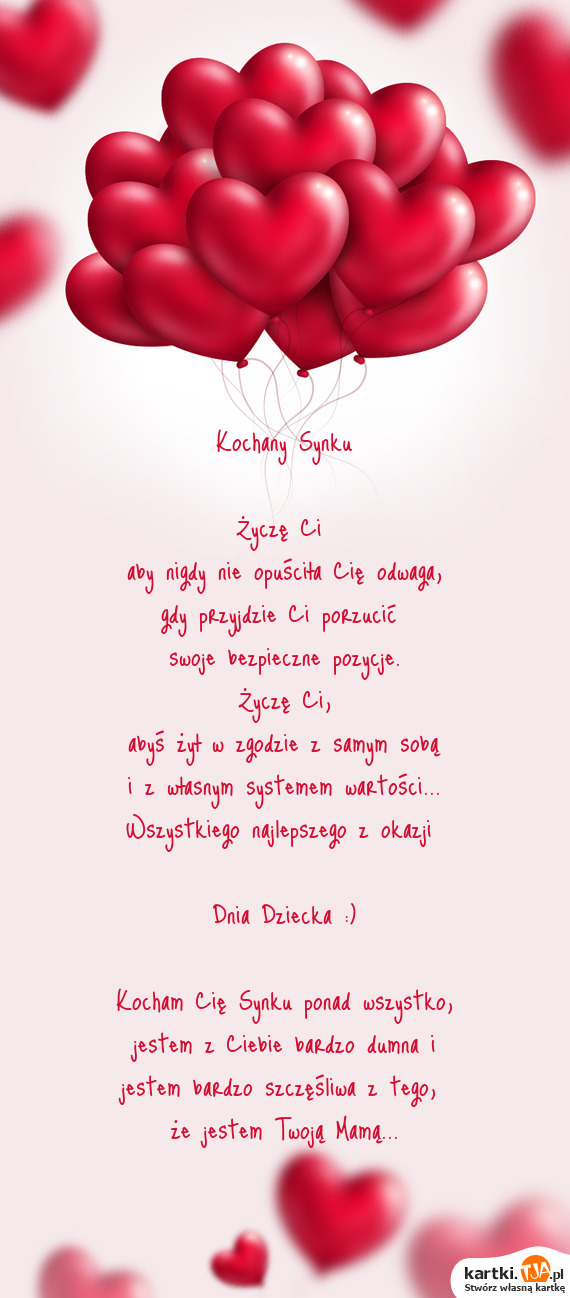 Kochany Synku
Życzę Ci
aby nigdy nie opuściła Cię odwaga,
gdy przyjdzie Ci porzucić
swoje bezpieczne pozycje.
Życzę Ci,
abyś żył w zgodzie z samym sobą
i z własnym systemem wartości...
Wszystkiego najlepszego z okazji
Dnia Dziecka :)
Kocham Cię Synku ponad wszystko,
jestem z Ciebie bardzo dumna i
jestem bardzo szczęśliwa z tego,
że jestem Twoją Mamą...
kartki.TJA.pl
Stwórz własną kartkę